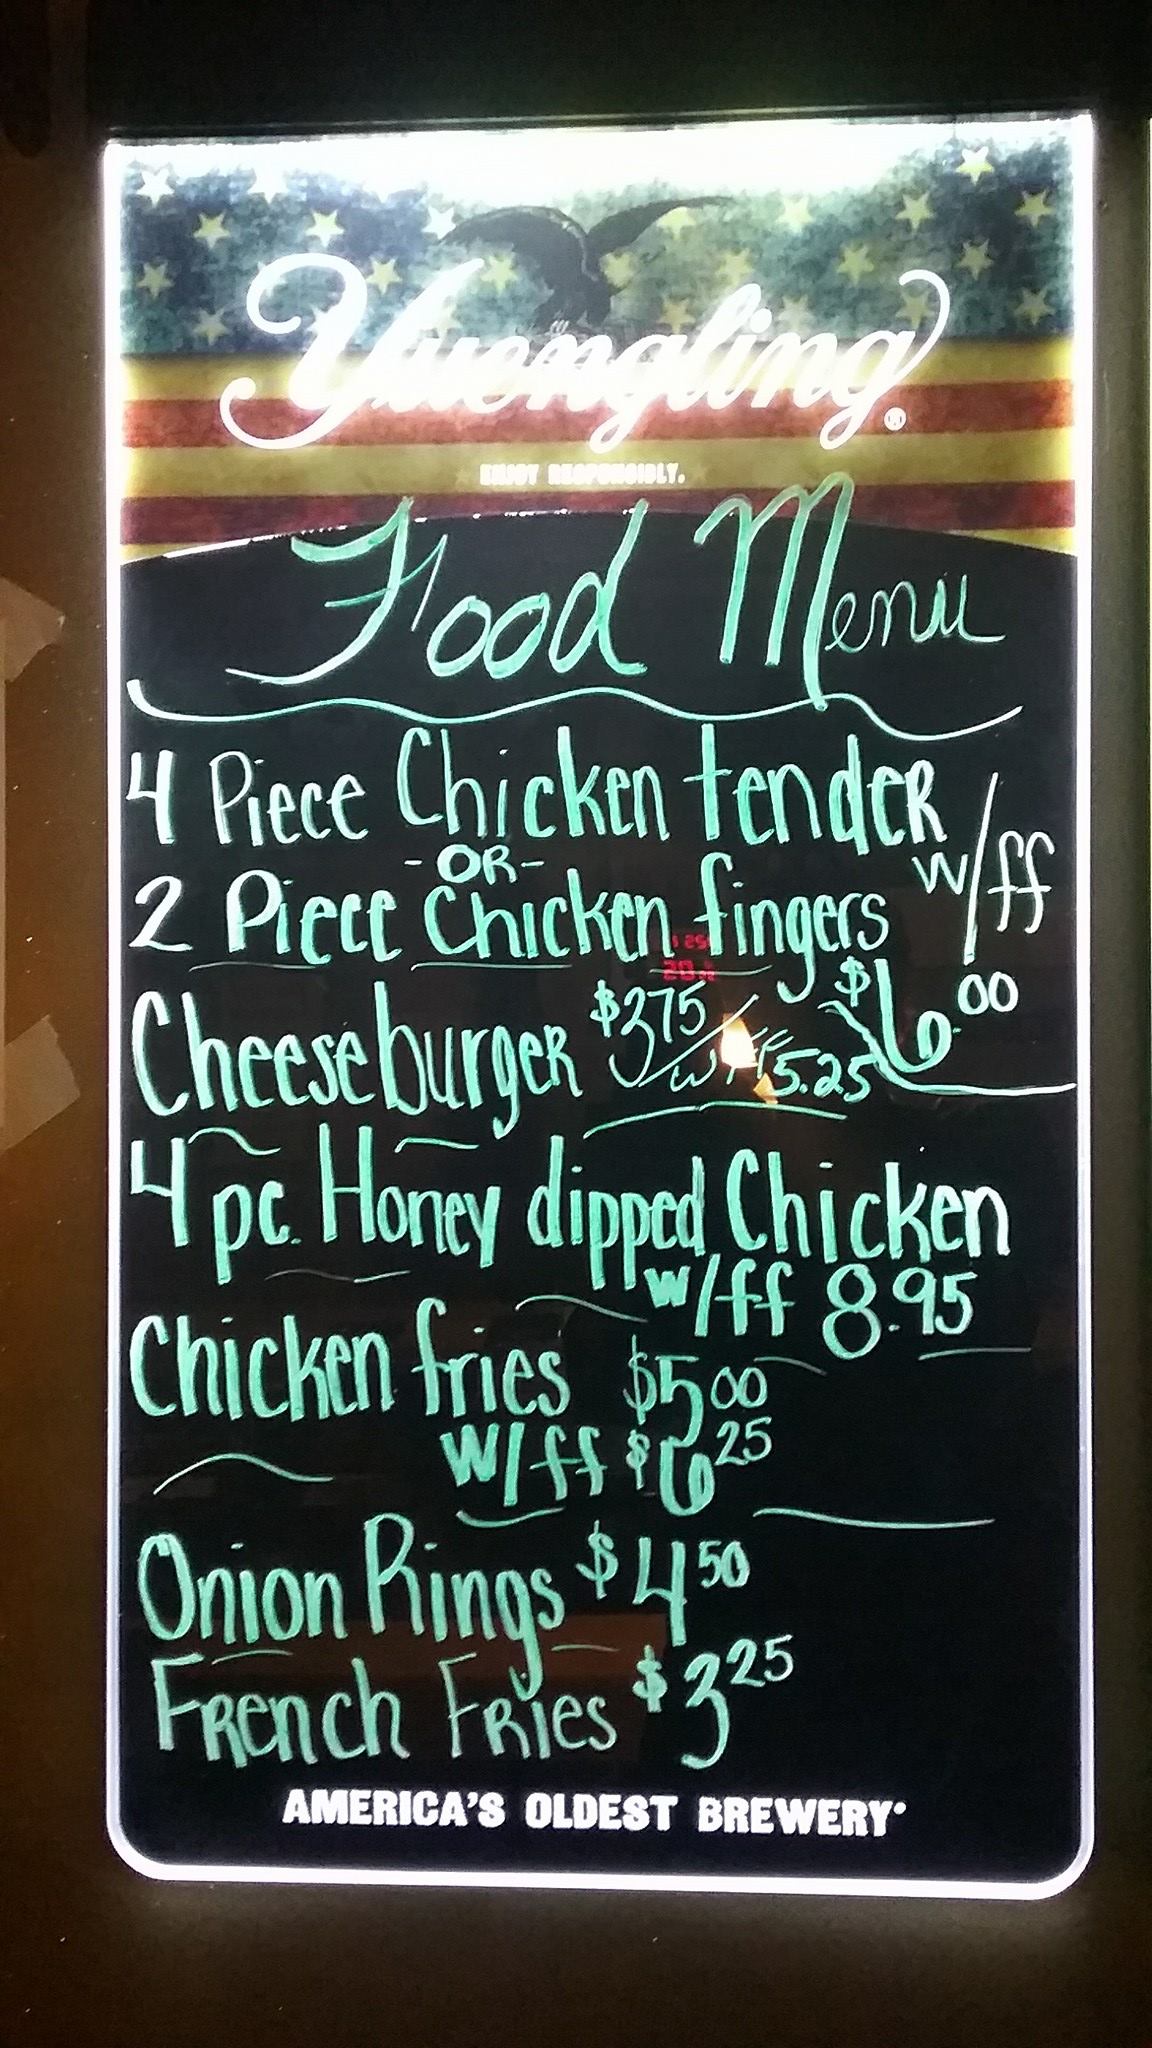 Yuengling®
ENJOY RESPONSIBLY.
Food Menu
4 Piece Chicken tender
-OR-
2 Piece Chicken fingers w/ff
$6.00
Cheeseburger $375 / w/ff 5.25
4 pc. Honey dipped Chicken
w/ff 8.95
Chicken fries $5 00
w/ff $6 25
Onion Rings $4 50
French Fries $3 25
AMERICA'S OLDEST BREWERY®